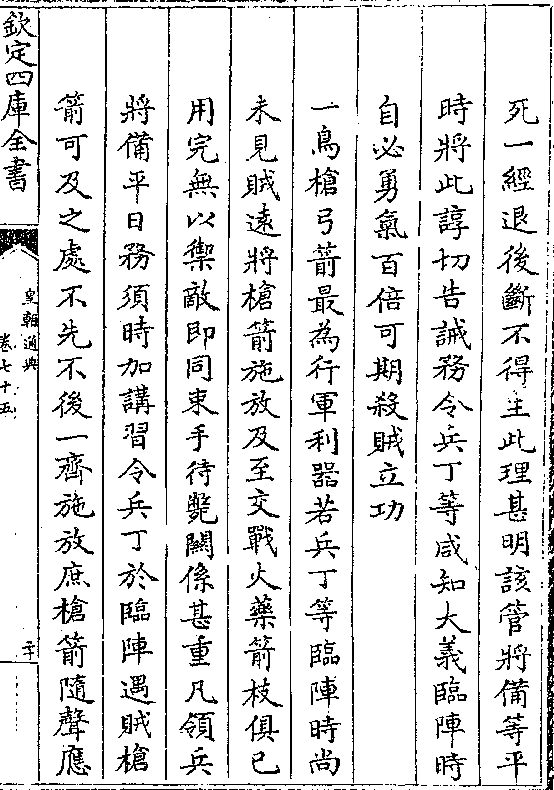 死一經退後斷不得生此理甚明該管將備等平
時將此諄切告誡務令兵丁等咸知大義臨陣時
自必勇氣百倍可期殺賊立功
一鳥槍弓箭最為行軍利器若兵丁等臨陣時尚
未見賊遠將槍箭施放及至交戰火藥箭枝俱已
用完無以禦敵即同束手待斃關係甚重凡領兵
將備平日務須時加講習令兵丁於臨陣遇賊槍
箭可及之處不先不後一齊施放庶槍箭隨聲應
欽定四庫全書
皇朝通典
卷七十五